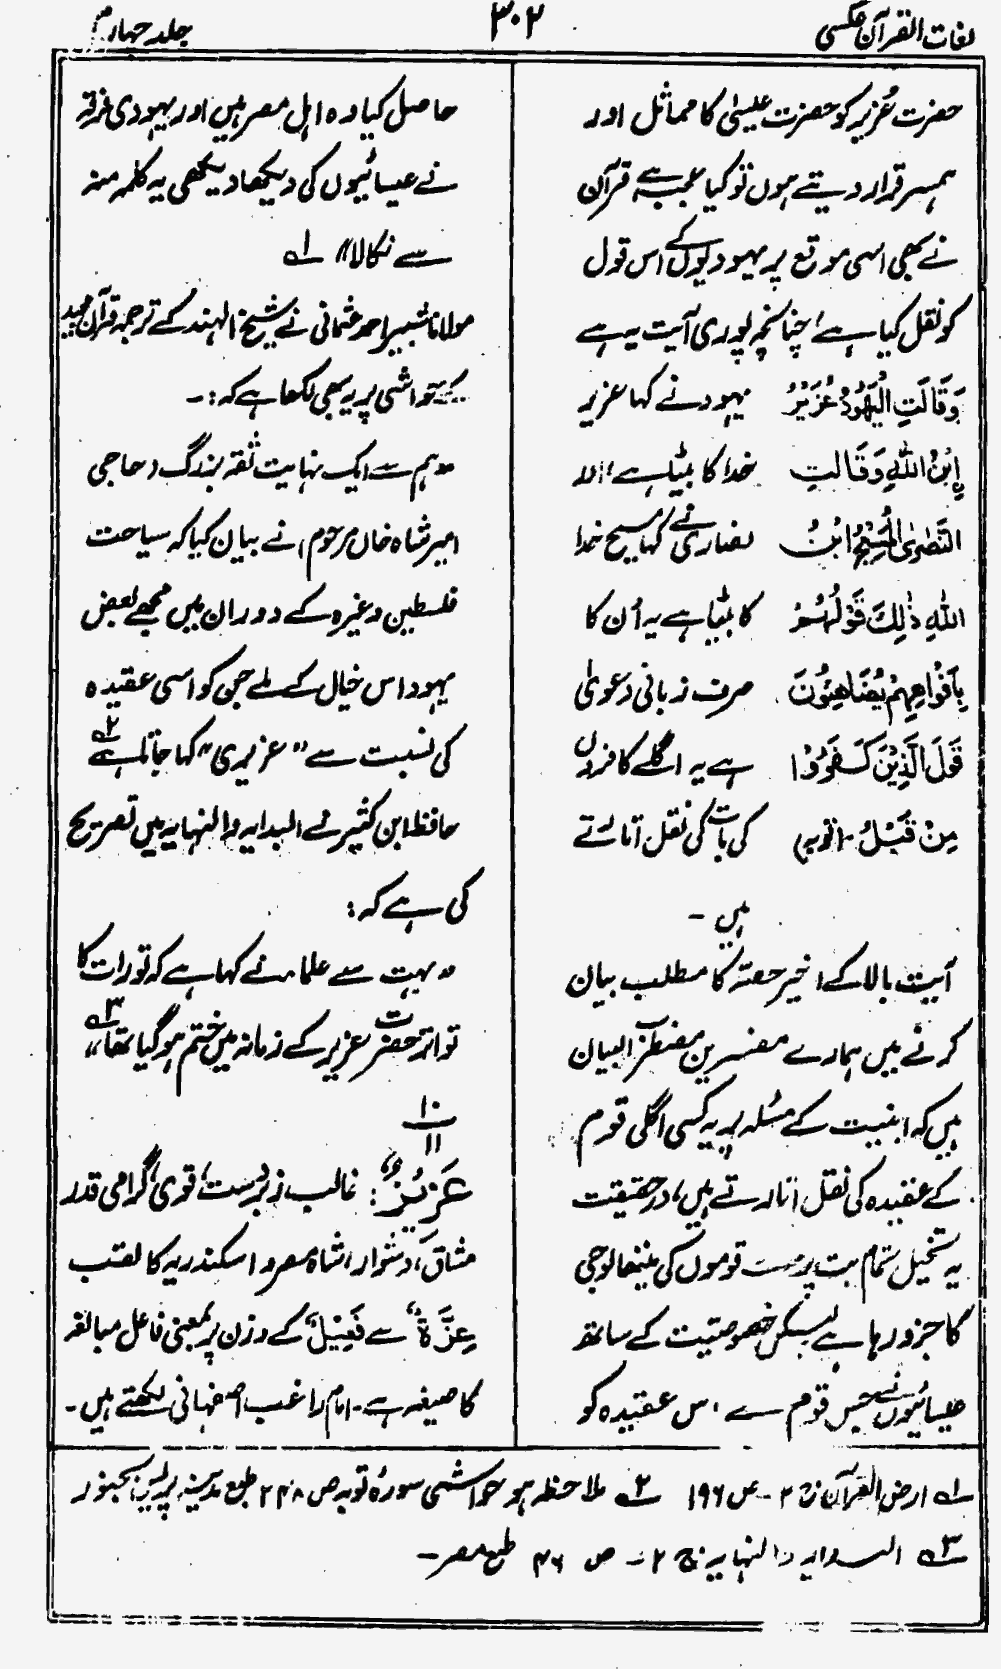 لغات القرآن عکسی
۳۰۲
جلد چہارم
حضرت عُزیر کو حضرت عیسیٰ کا مماثل اور
ہمسر قرار دیتے ہوں تو کیا عجب ہے قرآن
نے بھی اسی موقع پر یہودیوں کے اس قول
کو نقل کیا ہے، چنانچہ پوری آیت یہ ہے
وَقَالَتِ الْیَهُوْدُ عُزَیْرُ یہود نے کہا عزیر
ابْنُ اللّٰهِ وَقَالَتِ خدا کا بیٹا ہے، اور
النَّصٰرَی الْمَسِیْحُ ابْنُ نصاریٰ نے کہا مسیح خدا
اللّٰهِ ذٰلِكَ قَوْلُهُمْ کا بیٹا ہے یہ اُن کا
بِاَفْوَاهِهِمْ یُضَاهِئُوْنَ صرف زبانی دعویٰ
قَوْلَ الَّذِیْنَ کَفَرُوْا ہے یہ اگلے کافروں
مِنْ قَبْلُ (توبہ) کی بات کی نقل اتارتے
ہیں ۔
آیت بالا کے اخیر حصّہ کا مطلب بیان
کرنے میں ہمارے مفسرین مضطرب البیان
ہیں کہ ابنیت کے مسئلہ پر یہ کسی اگلی قوم
کے عقیدہ کی نقل اتارتے ہیں، درحقیقت
یہ تخیل تمام بت پرست قوموں کی میتھالوجی
کا جزو رہا ہے لیکن خصوصیت کے ساتھ
عیسائیوں نے جس قوم سے اس عقیدہ کو
حاصل کیا وہ اہل مصر ہیں اور یہودی فرقہ
نے عیسائیوں کی دیکھا دیکھی یہ کلمہ منہ
سے نکالا" ؎۱
مولانا شبیر احمد عثمانی نے شیخ الہند کے ترجمہ قرآن مجید
کے حواشی پر یہ بھی لکھا ہے کہ :۔
"ہم سے ایک نہایت ثقہ بزرگ (حاجی
امیر شاہ خاں مرحوم) نے بیان کیا کہ سیاحت
فلسطین وغیرہ کے دوران میں مجھے بعض
یہود اس خیال کے ملے جن کو اسی عقیدہ
کی نسبت سے "عزیری" کہا جاتا ہے ؎۲
حافظ ابن کثیر نے البدایہ والنہایہ میں تصریح
کی ہے کہ :
"بہت سے علماء نے کہا ہے کہ تورات کا
تواتر حضرت عزیر کے زمانہ میں ختم ہو گیا تھا" ؎۳
۱۰
۱۱
عَزِیْزٌ : غالب، زبردست، قوی، گرامی قدر
مشاق، دشوار، شاہ مصر و اسکندریہ کا لقب
عِزَّةٌ سے فَعِیْلٌ کے وزن پر بمعنی فاعل مبالغہ
کا صیغہ ہے ۔ امام راغب اصفہانی لکھتے ہیں ۔
؎۱ ارض القرآن ج ۲ ۔ ص ۱۹۶ ؎۲ ملاحظہ ہو حواشی سورۂ توبہ ص ۲۴۸ طبع مدینہ پریس بجنور
؎۳ البدایہ والنہایہ ج ۲ ۔ ص ۴۶ طبع مصر ۔